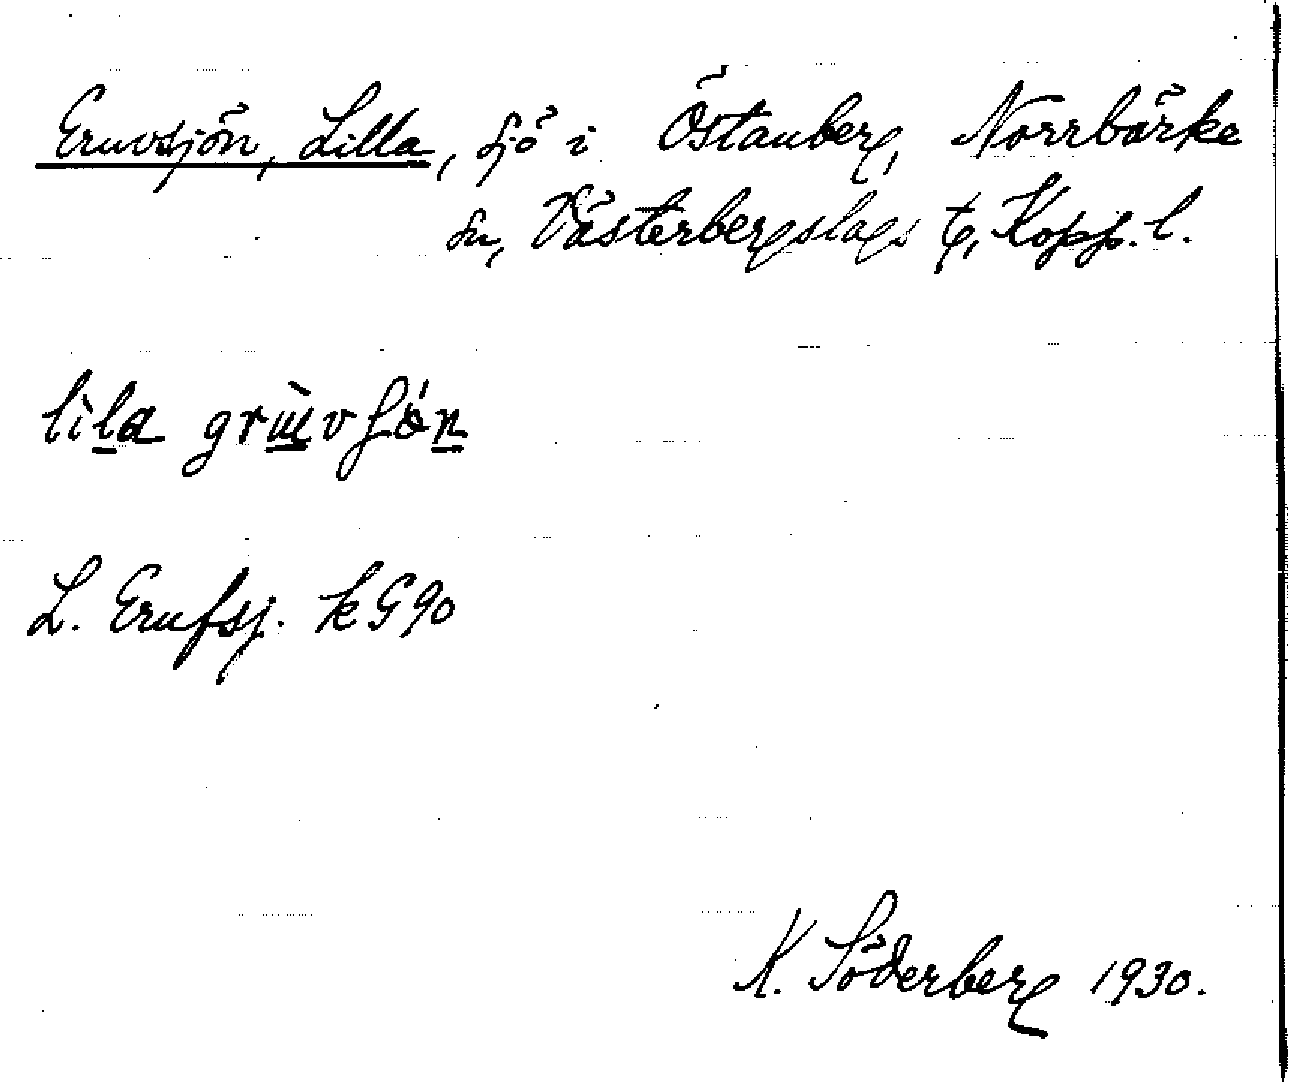 Eruvsjön, Lilla, sjö i Östanberg, Norrbärke
sn, Västerbergslags t, Kopp. l.
lìla
L. Erufsj. k G 90
K. Söderberg 1930.